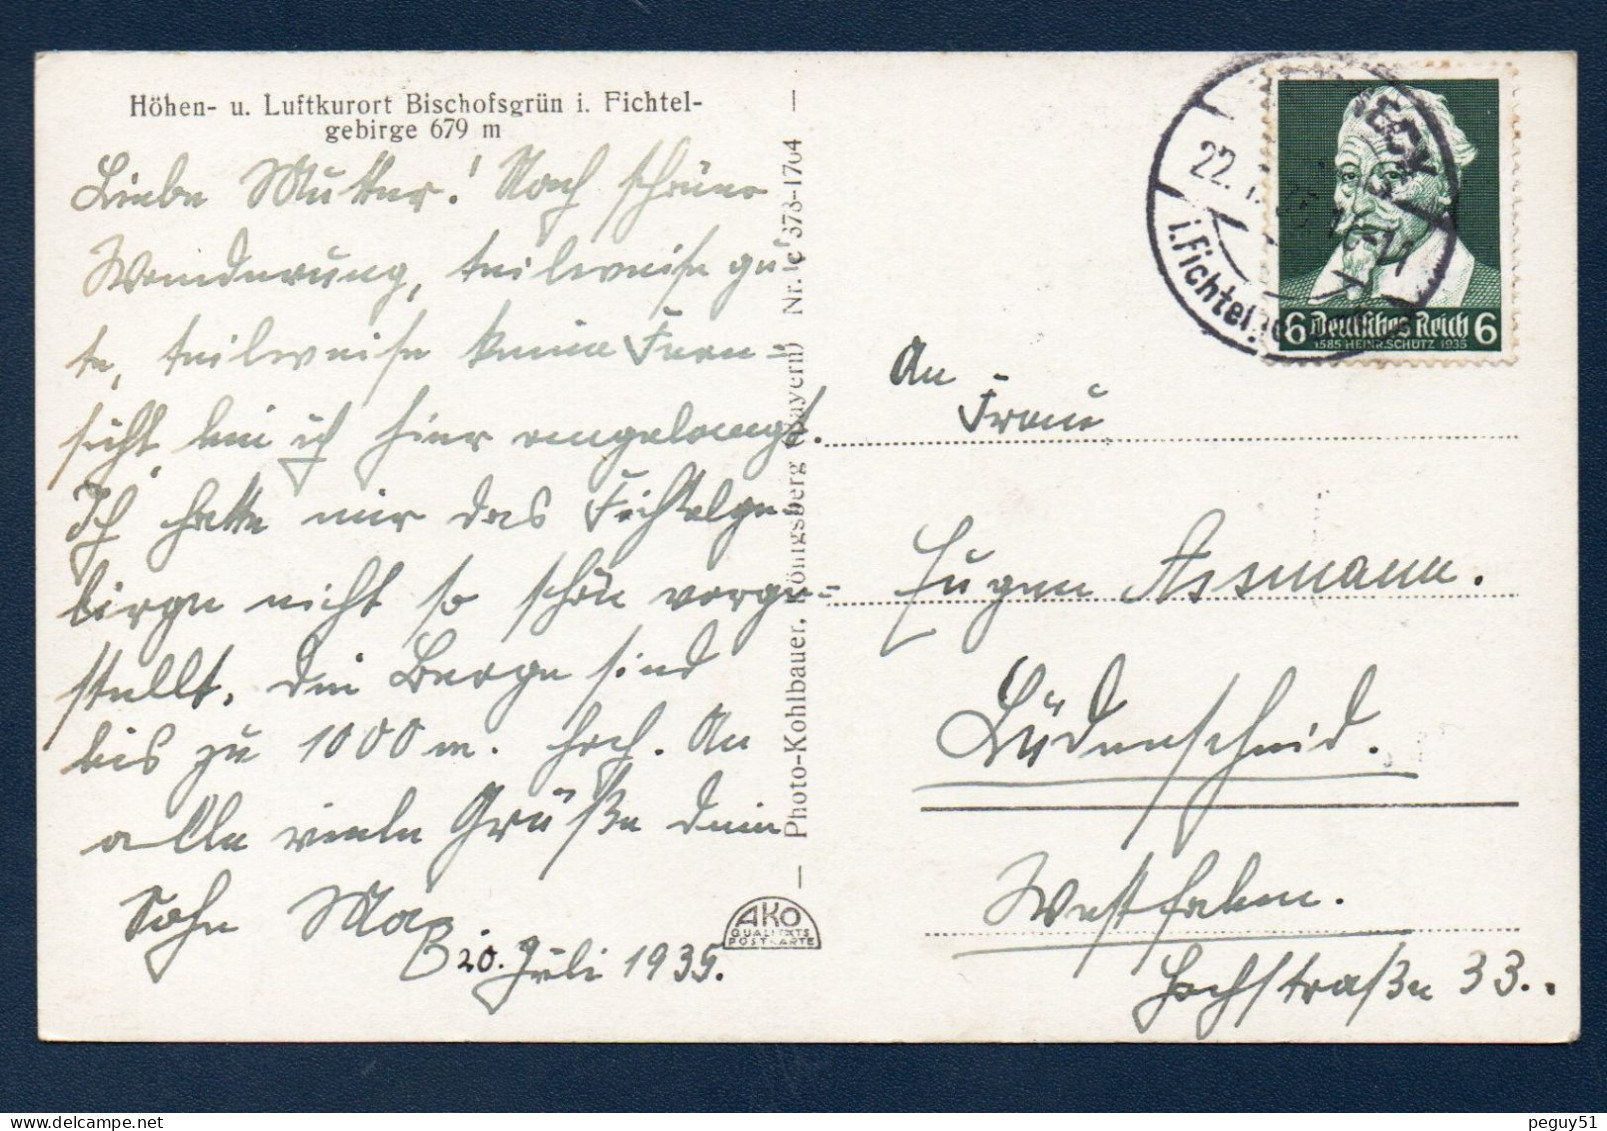 Höhen- u. Luftkurort Bischofsgrün i. Fichtel-
gebirge 679 m
Liebe Mutter! Nach schöner
Wanderung, teilweise gu-
te, teilweise keine Fern-
sicht, bin ich hier angelangt.
Ich hatte mir das Fichtelge-
birge nicht so schön vorge=
stellt, die Berge sind
bis zu 1000 m. hoch. An
alle viele Grüße dein
Sohn Max
20. Juli 1935.
Photo-Kohlbauer, Königsberg (Bayern) Nr. 1c 373-1764
AKO
QUALITÄTS
POSTKARTE
22.
i.Fichtel
6 Deutsches Reich 6
1585 HEINR.SCHÜTZ 1935
An
Frau
Eugen Assmann.
Lüdenscheid.
Westfalen.
Hochstraße 33..
peguy51